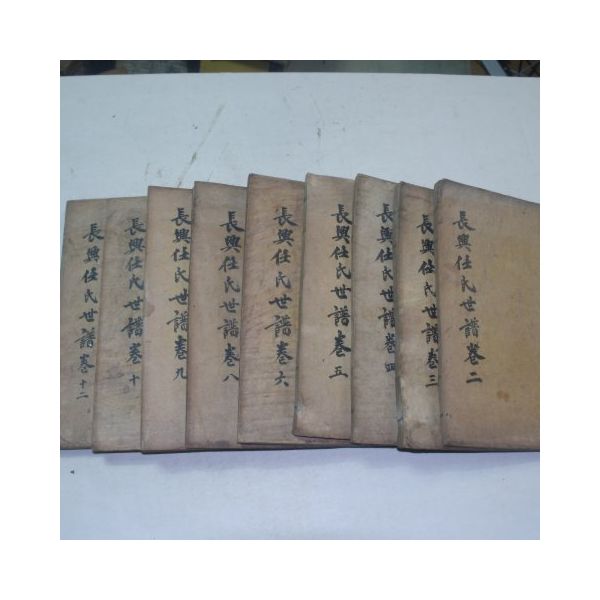 長興任氏世譜卷二
長興任氏世譜卷三
長興任氏世譜卷四
長興任氏世譜卷五
長興任氏世譜卷六
長興任氏世譜卷八
長興任氏世譜卷九
長興任氏世譜卷十
長興任氏世譜卷十二